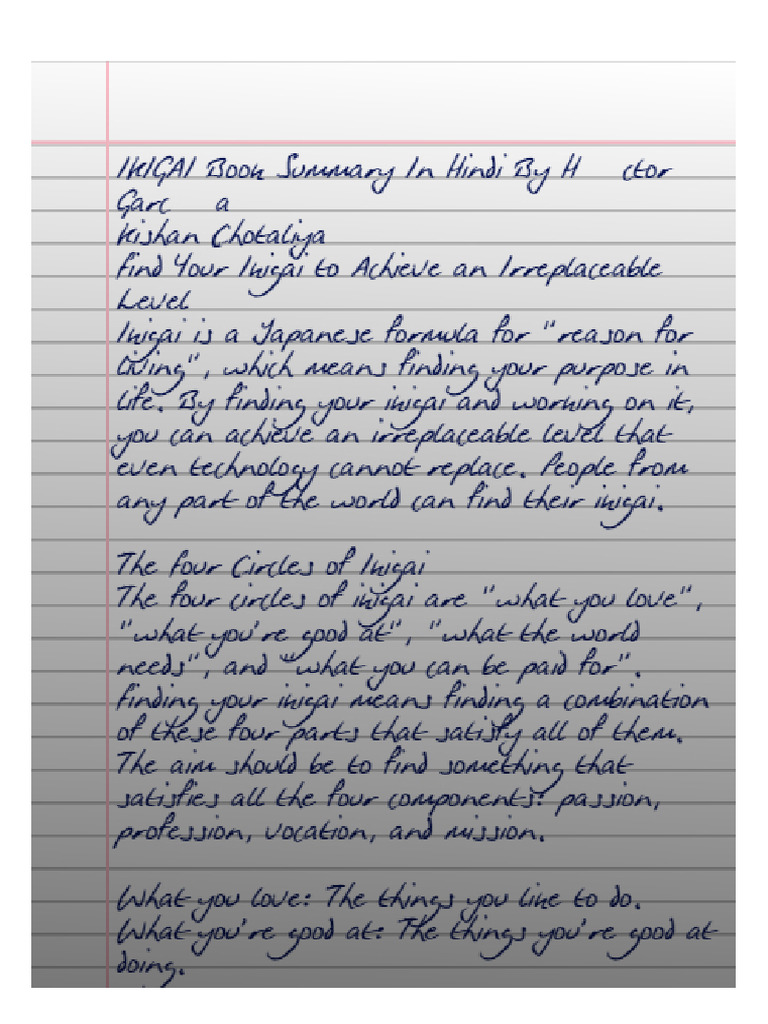 IKIGAI Book Summary In Hindi By H ctor
Garc a
Kishan Chotaliya
Find Your Ikigai to Achieve an Irreplaceable
Level
Ikigai is a Japanese formula for "reason for
living", which means finding your purpose in
life. By finding your ikigai and working on it,
you can achieve an irreplaceable level that
even technology cannot replace. People from
any part of the world can find their ikigai.
The Four Circles of Ikigai
The four circles of ikigai are "what you love",
"what you're good at", "what the world
needs", and "what you can be paid for".
Finding your ikigai means finding a combination
of these four parts that satisfy all of them.
The aim should be to find something that
satisfies all the four components: passion,
profession, vocation, and mission.
What you love: The things you like to do.
What you're good at: The things you're good at
doing.